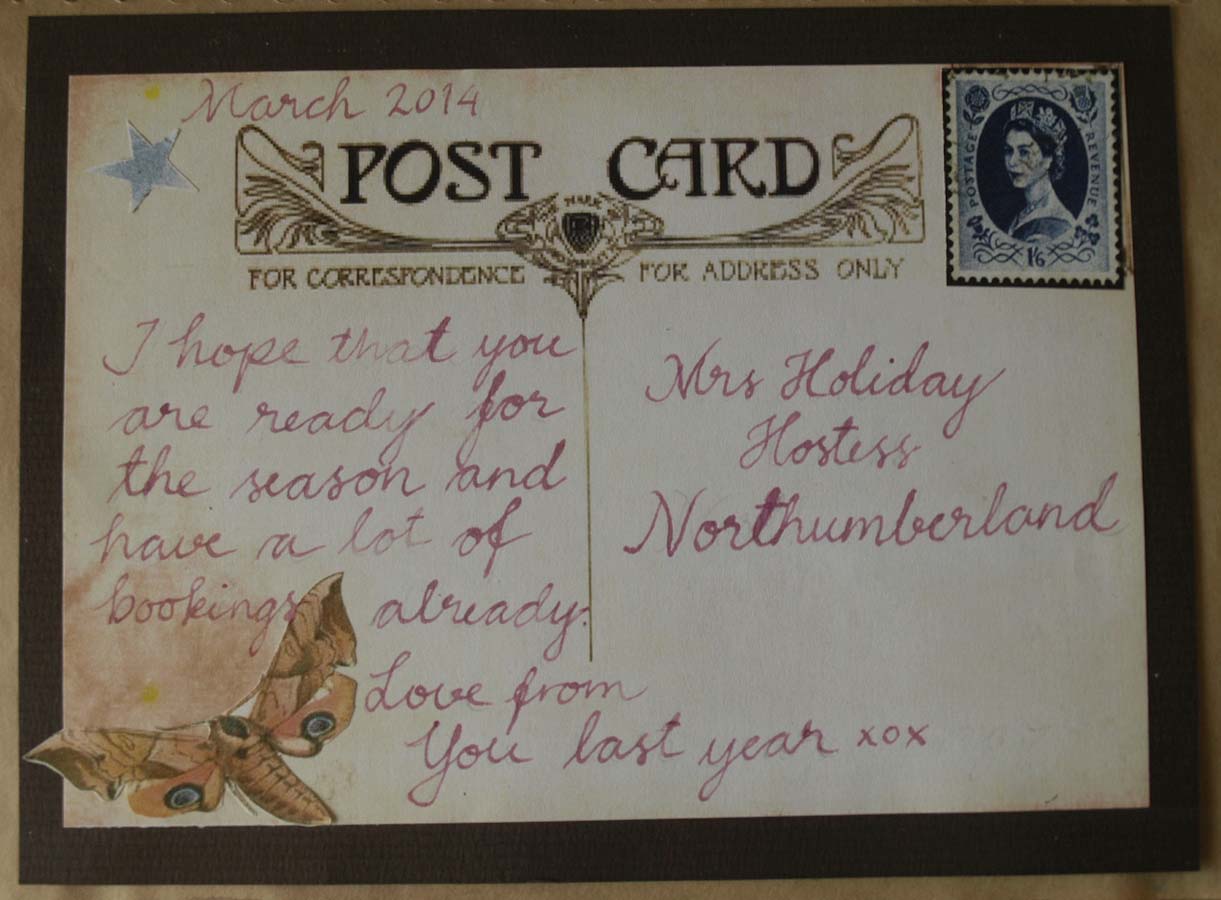 March 2014
POST CARD
FOR CORRESPONDENCE
FOR ADDRESS ONLY
POSTAGE
REVENUE
1/6
I hope that you
are ready for
the season and
have a lot of
bookings already.
Love from
You last year xox
Mrs Holiday
Hostess
Northumberland